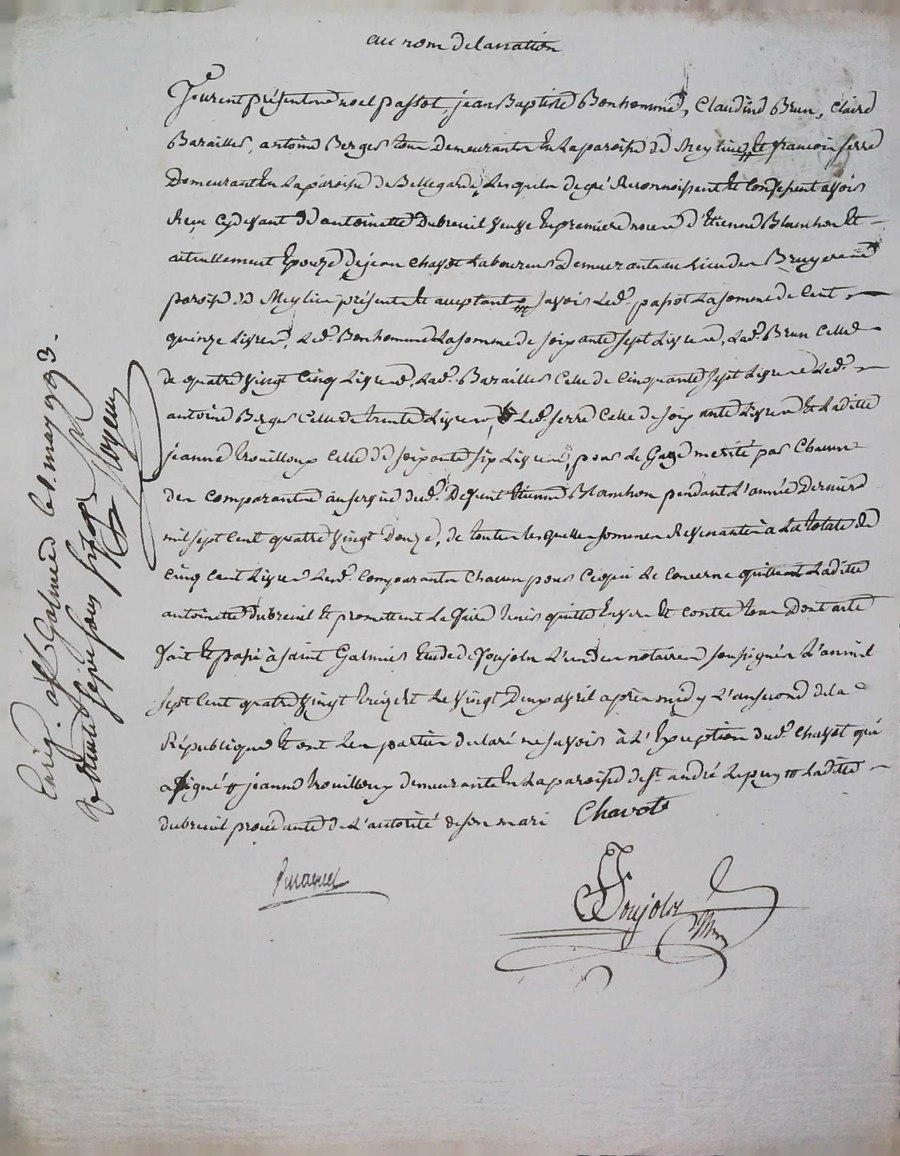 au nom de la nation
furent présents noel passot, jean Baptiste Bonhomme, Claudine Brun, Claire
Barailles, antoine Berger tous Demeurants En La paroisse de Meylieu et francois ferre
Demeurant En La paroisse de Bellegarde, Lesquels de gré Reconnoissent et Confessent avoir
Reçu Cydevant de antoinette Dubreuil veuve En premiere noces d'Etienne Blanchon et
actuellement Epouze de jean Chavot Laboureur Demeurants au Lieu des Bruyeres
paroisse de Meylieu présente et acceptante savoir Led. passot La somme de Cent
quinze Livres, Led. Bonhomme La somme de soixante sept Livres, Lad. Brun Celle
de quatre vingt Cinq Livres Lad. Barailles Celle de Cinquante sept Livres Led.
antoine Berger Celle de trente Livres, Led. ferre Celle de soixante Livres et Laditte
jeanne trouilloux Celle de soixante six Livres, pour Le Gage merité par Chacun
des Comparants au service dud. Defunt Etienne Blanchon pendant L'année Derniere
mil sept Cent quatre vingt Douze, de toutes lesquelles sommes Revenante à La totale de
Cinq Cent Livres Lesd. Comparants Chacun pour Ce qui Le Concerne quittent Laditte
antoinette dubreuil et promettent La faire tenir quitte Envers et Contre tous Dont acte
fait et passé à saint Galmier Etude de Poujols L'un des notaires soussignés L'an mil
sept Cent quatre vingt treize et Le vingt deux avril après midy L'an second de la
République et ont Les parties declaré ne savoir à L'Exception dud. Chavot qui
a signé jeanne trouilloux demeurante En La paroisse de St. andré Le puy Laditte
dubreuil procédante de L'autorité de son mari Chavot
Poujols
Enrg. a St Galmier le 1. may 1793.